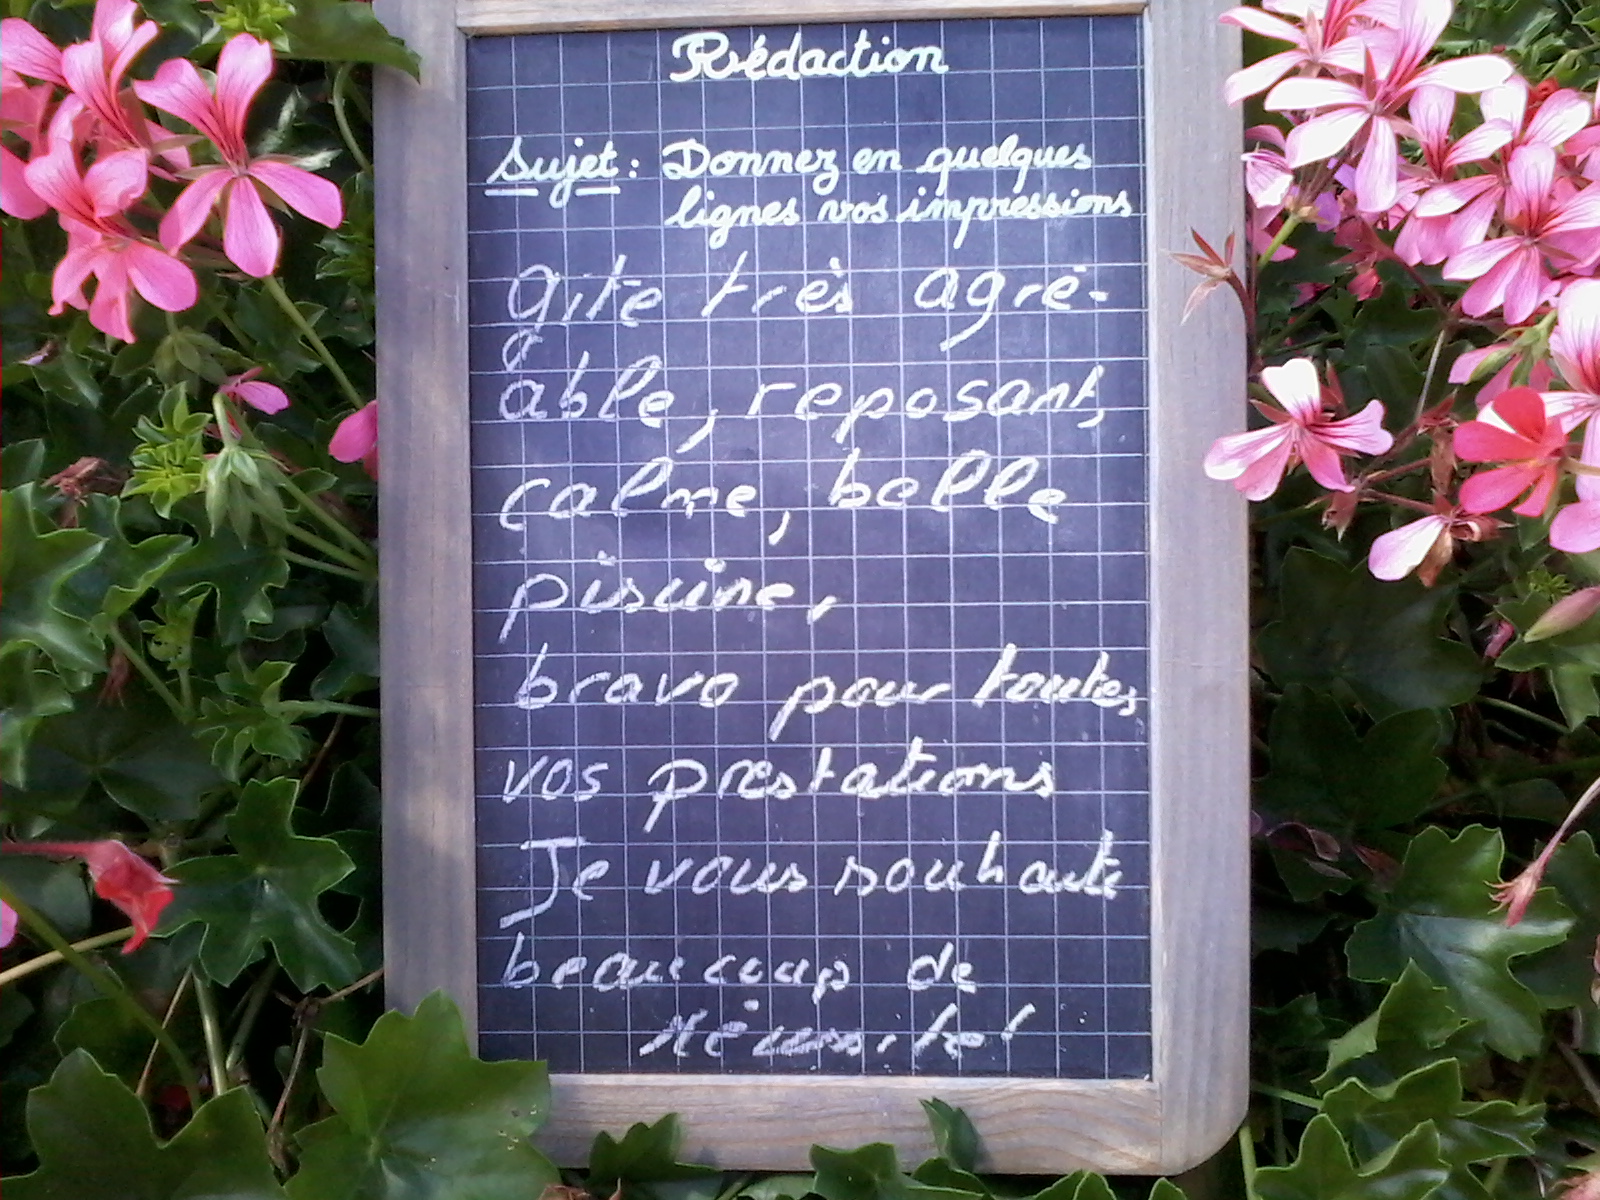 Rédaction
Sujet : Donnez en quelques
lignes vos impressions
gîte très agré-
able, reposant,
calme, belle
piscine,
bravo pour toutes
vos prestations
Je vous souhaite
beaucoup de